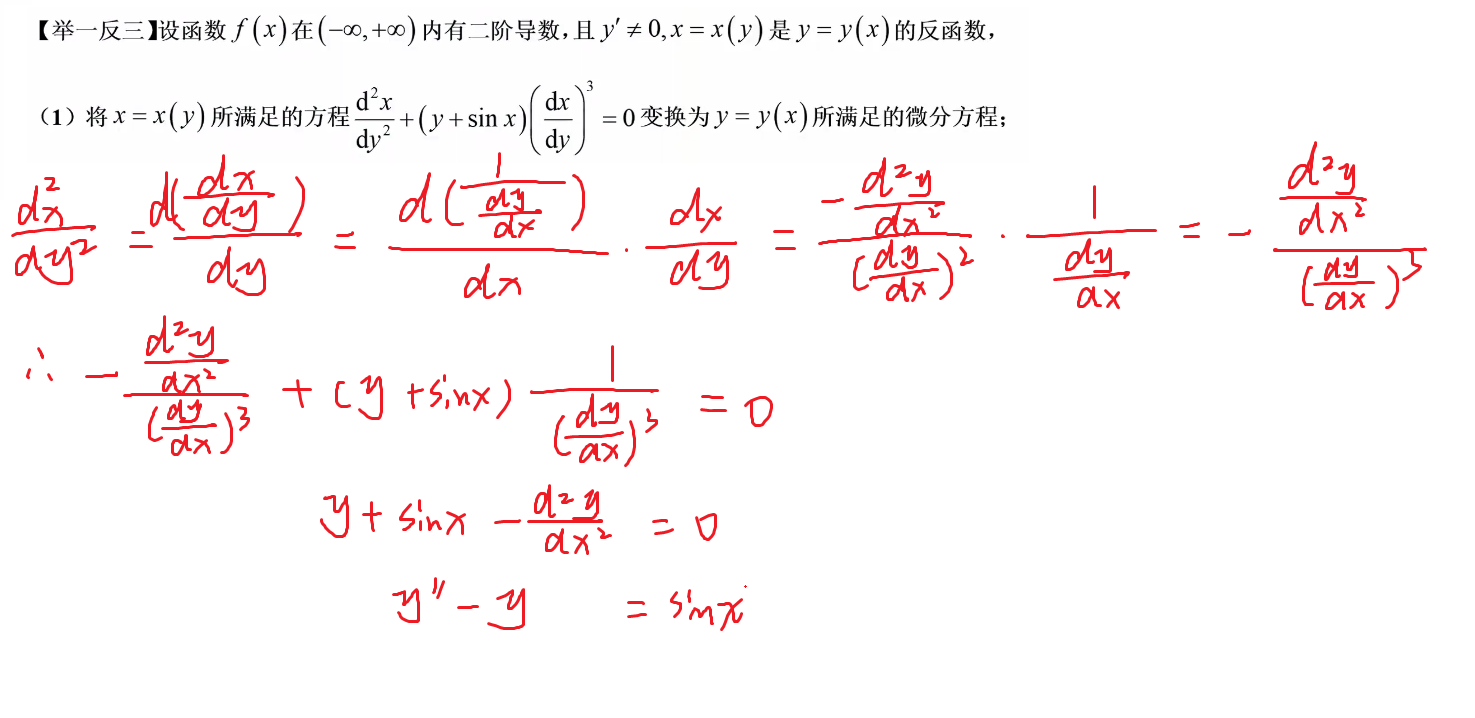 【举一反三】设函数 f(x) 在 (−∞,+∞) 内有二阶导数，且 y′ ≠ 0, x = x(y) 是 y = y(x) 的反函数，
（1）将 x = x(y) 所满足的方程 \frac{d²x}{dy²} + (y + sin x)\left(\frac{dx}{dy}\right)³ = 0 变换为 y = y(x) 所满足的微分方程；
\frac{d²x}{dy²} = \frac{d(\frac{dx}{dy})}{dy} = \frac{d(\frac{1}{\frac{dy}{dx}})}{dx} · \frac{dx}{dy} = \frac{-\frac{d²y}{dx²}}{(\frac{dy}{dx})²} · \frac{1}{\frac{dy}{dx}} = - \frac{\frac{d²y}{dx²}}{(\frac{dy}{dx})³}
∴ - \frac{\frac{d²y}{dx²}}{(\frac{dy}{dx})³} + (y + sinx) \frac{1}{(\frac{dy}{dx})³} = 0
y + sinx - \frac{d²y}{dx²} = 0
y″ - y = sinx